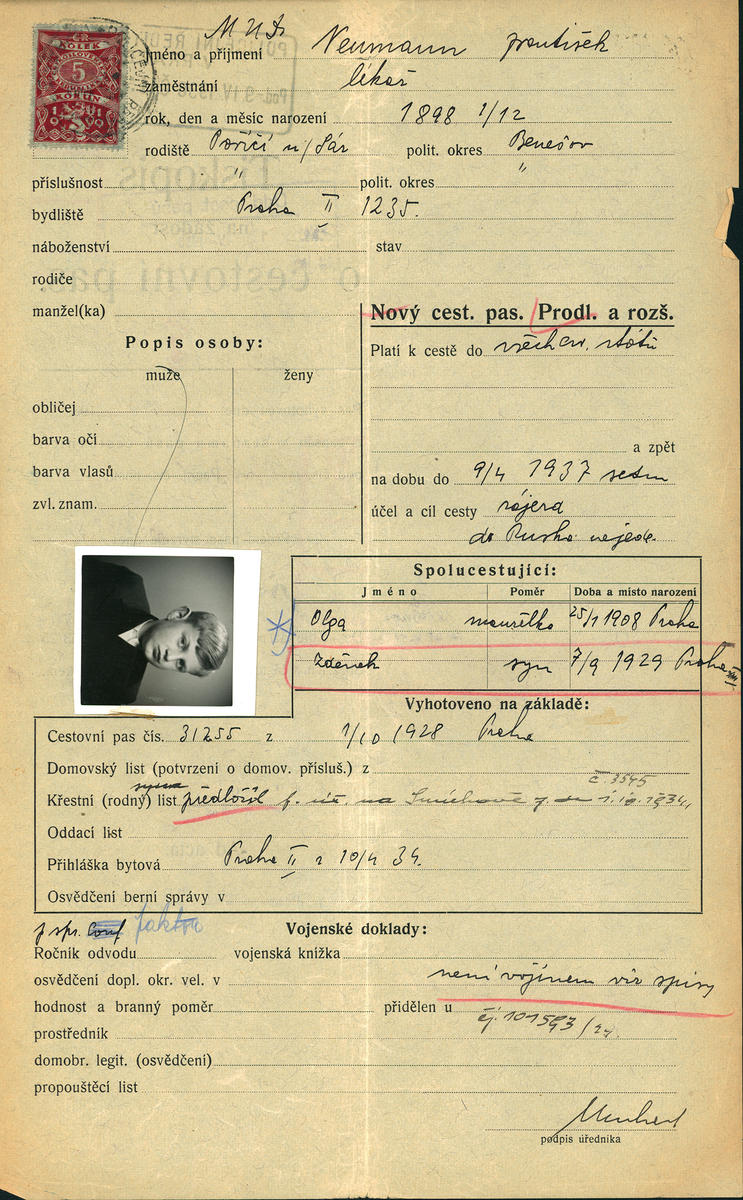 MUDr
Jméno a příjmení Neumann František
zaměstnání lékař
rok, den a měsíc narození 1898 1/12
rodiště Poříčí n/Sáz polit. okres Benešov
příslušnost " polit. okres "
bydliště Praha II 1235.
náboženství stav
rodiče
manžel(ka)
Nový cest. pas. Prodl. a rozš.
Popis osoby:
muže ženy
obličej
barva očí
barva vlasů
zvl. znam.
Platí k cestě do všech ev. států
a zpět
na dobu do 9/4 1937
účel a cíl cesty
do Ruska nejede.
Spolucestující:
Jméno Poměr Doba a místo narození
Olga manželka 25/1 1908 Praha
Zdeněk syn 7/9 1929 Praha
Vyhotoveno na základě:
Cestovní pas čís. 31255 z 1/10 1928 Praha
Domovský list (potvrzení o domov. přísluš.) z
č. 3545
syna
Křestní (rodný) list předložil na Smíchově 1.10.1934.
Oddací list
Přihláška bytová Praha II z 10/4 34.
Osvědčení berní správy v
Vojenské doklady:
Ročník odvodu vojenská knížka
osvědčení dopl. okr. vel. v není vojínem viz spisy
hodnost a branný poměr přidělen u čj. 101593/
prostředník
domobr. legit. (osvědčení)
propouštěcí list
podpis úředníka
5
KORUN